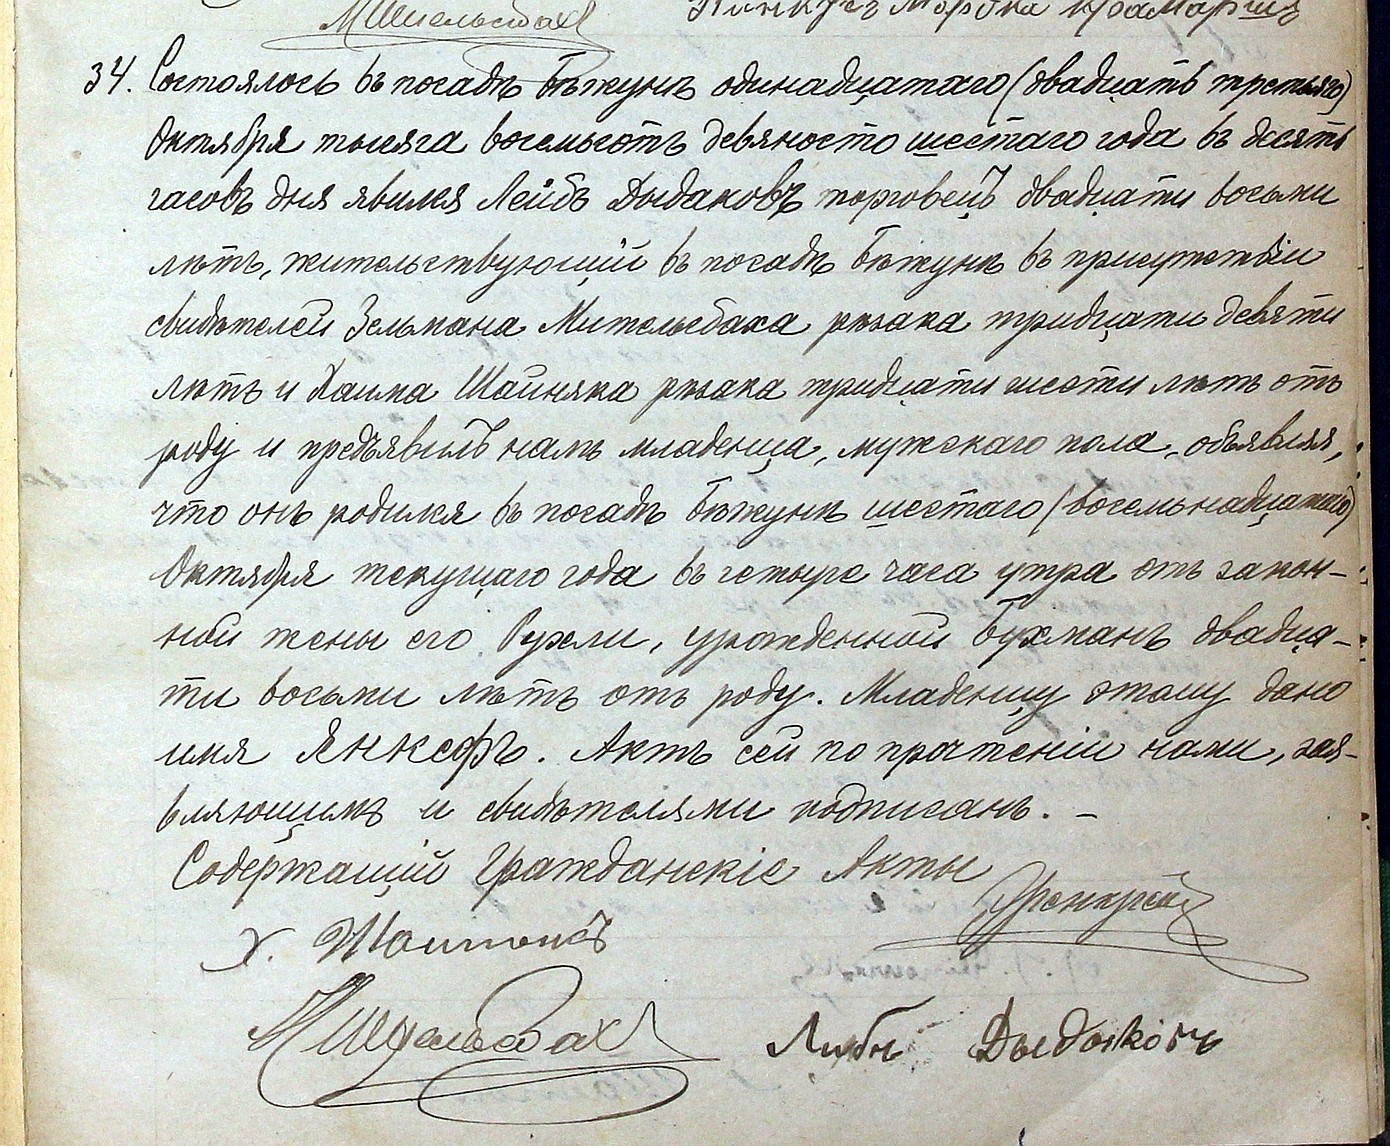 Пинкусъ Мордка Крамаржъ
34. Состоялось въ посадѣ Бѣжунѣ одинадцатаго (двадцать третьяго)
Октября тысяча восемьсотъ девяносто шестаго года въ десять
часовъ дня явился Лейбъ Дыдаковъ торговецъ двадцати восьми
лѣтъ, жительствующій въ посадѣ Бѣжунѣ въ присутствіи
свидѣтелей Зельмана Мительсбаха рѣзака тридцати девяти
лѣтъ и Хаима Шайняка рѣзака тридцати шести лѣтъ отъ
роду и предъявилъ намъ младенца, мужскаго пола, объявляя,
что онъ родился въ посадѣ Бѣжунѣ шестаго (восемьнадцатаго)
Октября текущаго года въ четыре часа утра отъ закон-
ной жены его Рухли, урожденной Бухманъ двадца-
ти восьми лѣтъ отъ роду. Младенцу этому дано
имя Янкефъ. Актъ сей по прочтеніи нами, зая-
вляющимъ и свидѣтелями подписанъ. -
Содержащій Гражданскіе Акты
Х.
Лейбъ Дыдаковъ